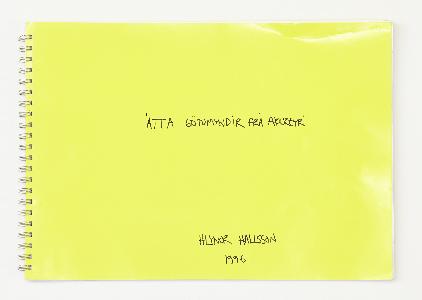 ÁTTA GÖTUMYNDIR FRÁ AKUREYRI
HLYNUR HALLSSON
1996